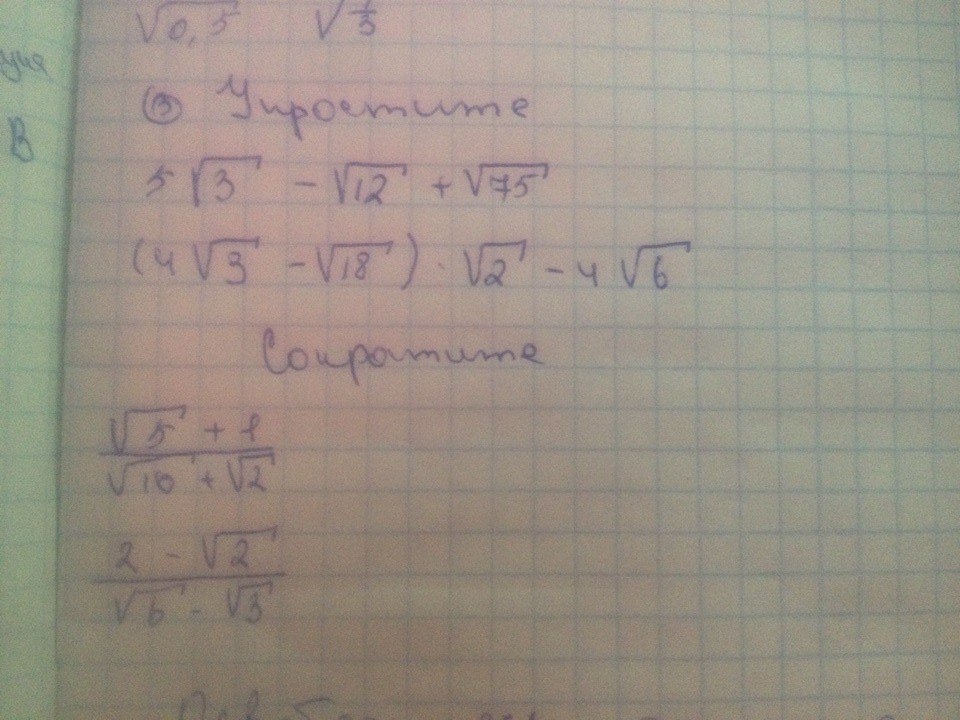 √0,5 √(1/3)
В
③ Упростите
5√3 - √12 + √75
(4√3 - √18) · √2 - 4√6
Сократите
(√5 + 1)/(√10 + √2)
(2 - √2)/(√6 - √3)